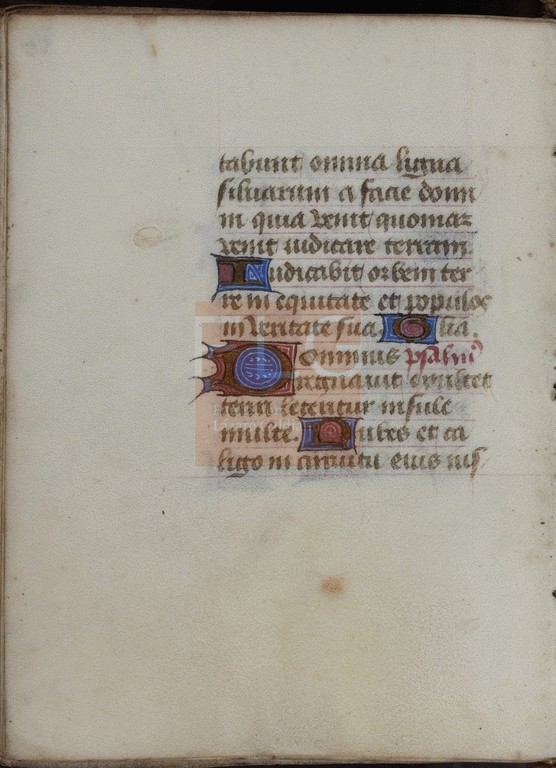 tabunt omnia ligna
siluarum a facie domi
ni quia venit quoniaz
venit iudicare terram.
Iudicabit orbem ter
re in equitate et populos
in veritate sua. Glia.
Dominus psalm9
regnauit exultet
terra letentur insule
multe. Nubes et ca
ligo in circuitu eius ius